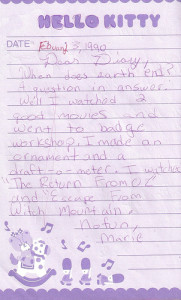 HELLO KITTY
DATE: 3, 1990
Dear Diary,
When does earth end?
A question in answer.
Well I watched 2
good movies and
went to badge
workshop. I made an
ornament and a
draft-o-meter. I watched
"The Return From OZ"
and Escape From
Witch Mountain
Marie